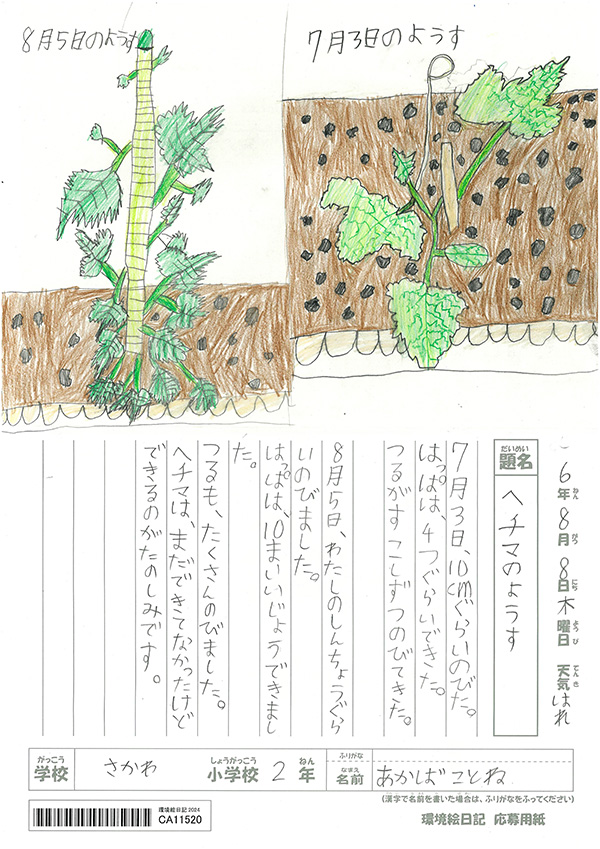 8月5日のようす
7月3日のようす
6年 8月 8日 木曜日 天気 はれ
ねん がつ にち ようび てんき
だいめい
題名
ヘチマのようす
7月3日、10cmぐらいのびた。
はっぱは、4つぐらいできた。
つるがすこしずつのびてきた。
8月5日、わたしのしんちょうぐら
いのびました。
はっぱは、10まいいじょうできまし
た。
つるも、たくさんのびました。
ヘチマは、まだできてなかったけど
できるのがたのしみです。
がっこう
学校
さかわ
しょうがっこう
小学校
2
ねん
年
ふりがな
なまえ
名前
あかしば ことね
(漢字で名前を書いた場合は、ふりがなをふってください)
環境絵日記 2024
CA11520
環境絵日記 応募用紙